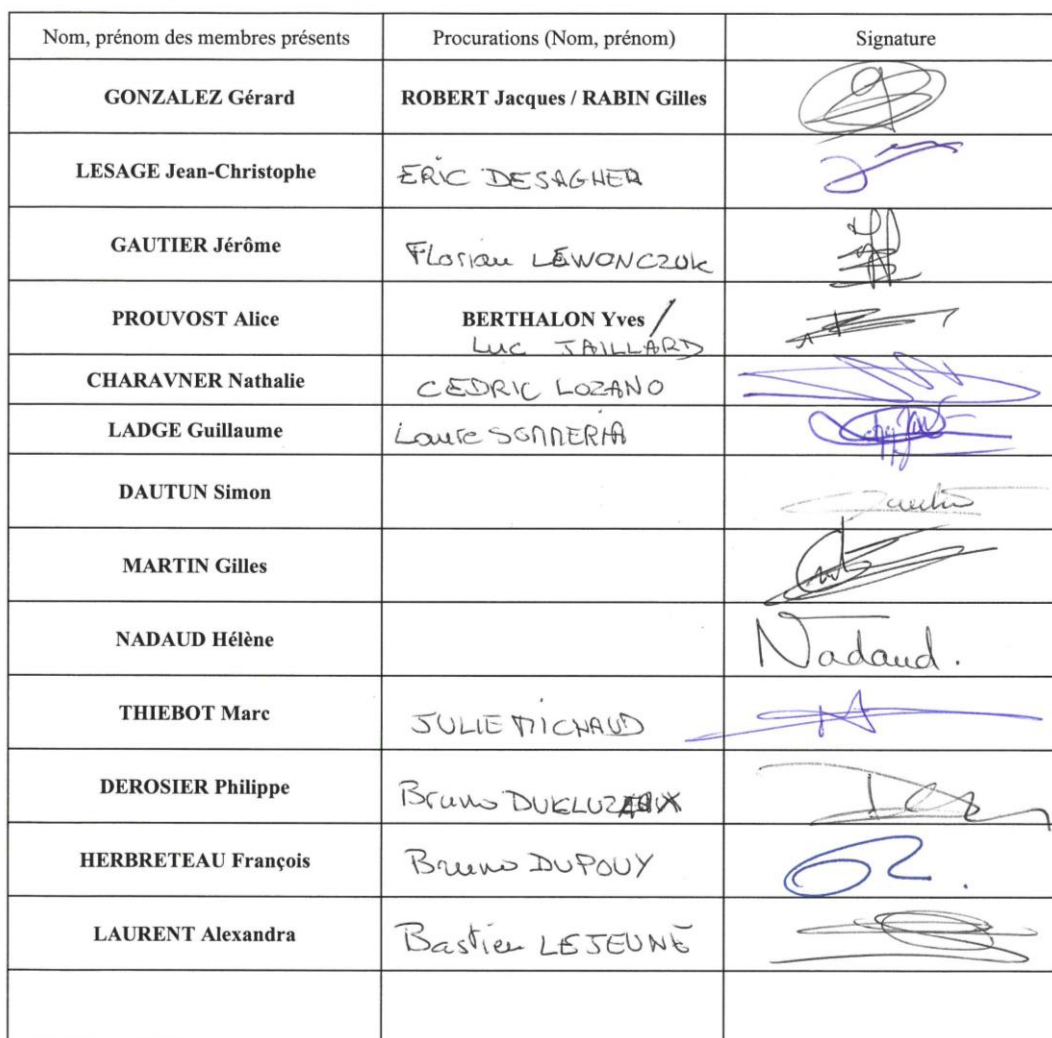 Nom, prénom des membres présents Procurations (Nom, prénom) Signature
GONZALEZ Gérard ROBERT Jacques / RABIN Gilles
LESAGE Jean-Christophe ERIC DESAGHER
GAUTIER Jérôme Florian LEWONCZUK
PROUVOST Alice BERTHALON Yves /
Luc JAILLARD
CHARAVNER Nathalie CEDRIC LOZANO
LADGE Guillaume Laure
DAUTUN Simon
MARTIN Gilles
NADAUD Hélène Nadaud.
THIEBOT Marc JULIE MICHAUD
DEROSIER Philippe Bruno
HERBRETEAU François Bruno DUPOUY
LAURENT Alexandra Bastien LEJEUNE